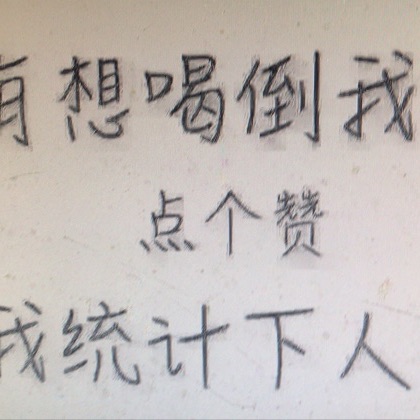 有想喝倒我
点个赞
我统计下人